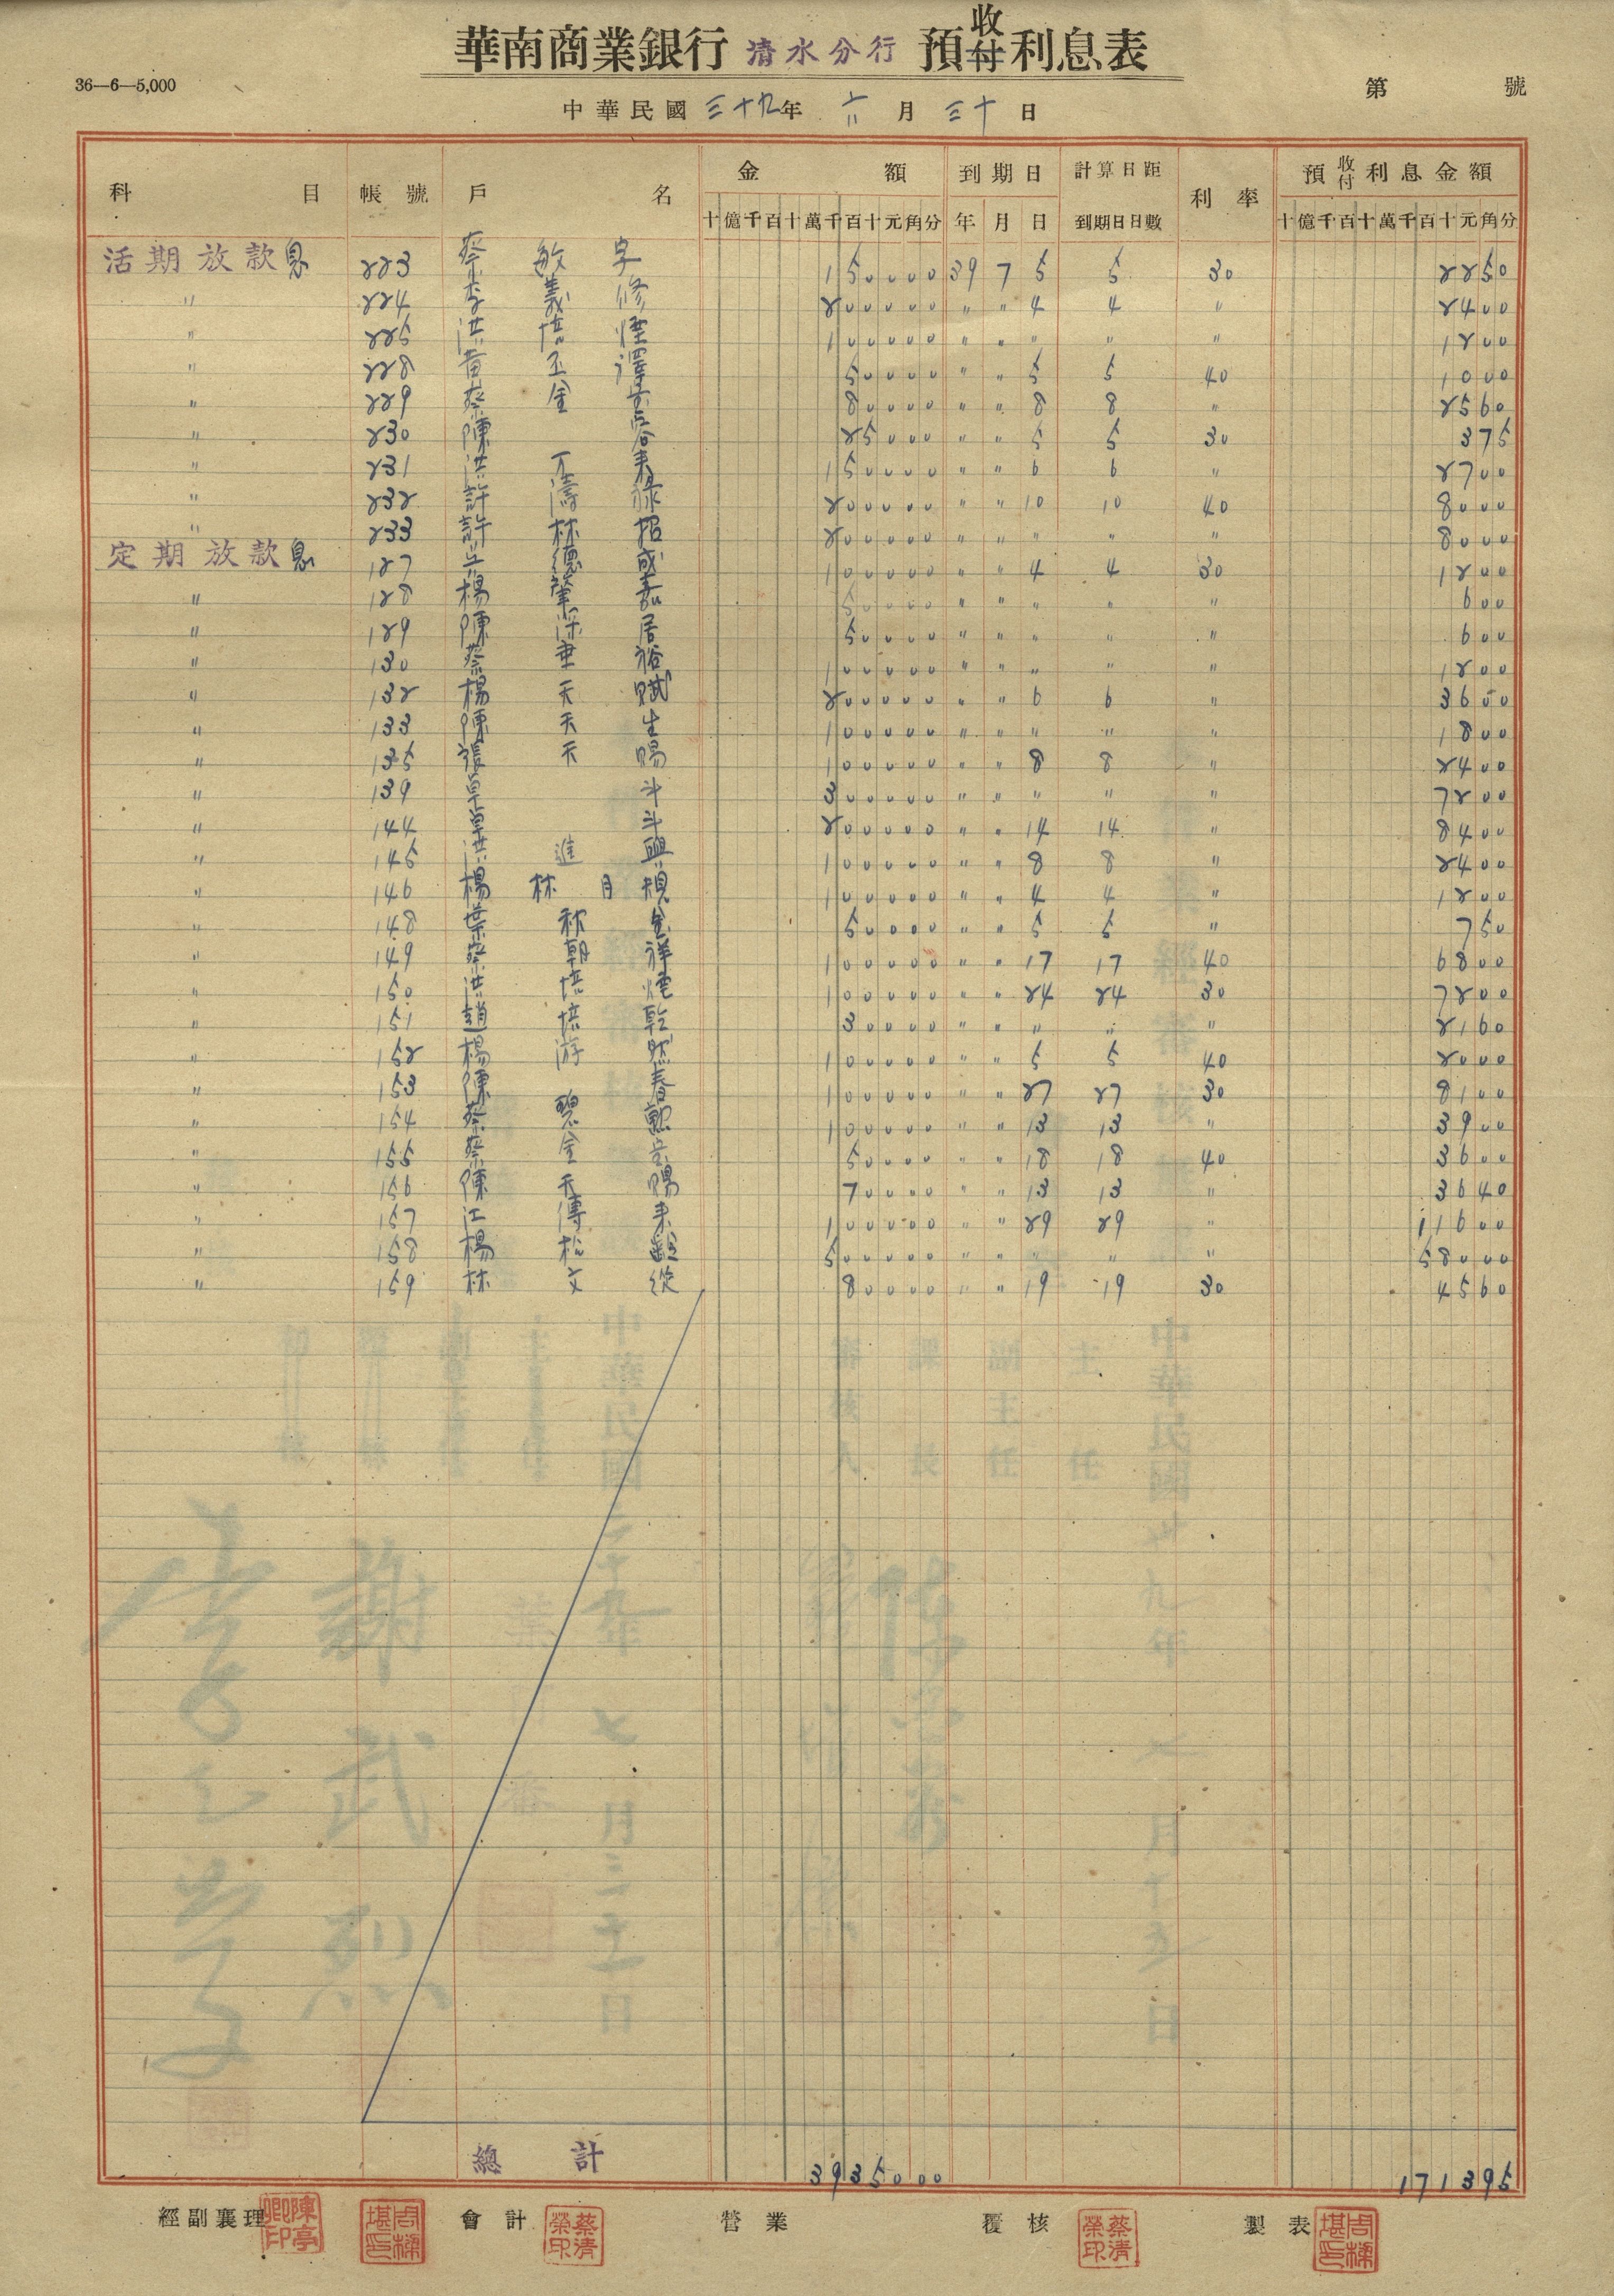 華南商業銀行 清水分行 預收付利息表
36—6—5,000
第 號
中華民國 三十九年 六月 三十日
科 目 帳號 戶 名 金 額 到期日 計算日距到期日日數 利率 預收付利息金額
十億千百十萬千百十元角分 年 月 日 十億千百十萬千百十元角分
活期放款息 223 蔡敏字 150000 39 7 5 5 30 2250
〃 224 李義修 200000 〃 〃 4 4 〃 2400
〃 225 洪培煙 100000 〃 〃 〃 〃 〃 1200
〃 228 黃玉澤 50000 〃 〃 5 5 40 1000
〃 229 蔡金 80000 〃 〃 8 8 〃 2560
〃 230 陳 25000 〃 〃 5 5 30 375
〃 231 洪万來 150000 〃 〃 6 6 〃 2700
〃 232 許濤祿 200000 〃 〃 10 10 40 8000
〃 233 許林招 200000 〃 〃 〃 〃 〃 8000
定期放款息 127 德成 100000 〃 〃 4 4 30 1200
〃 128 楊肇嘉 50000 〃 〃 〃 〃 〃 600
〃 129 陳深居 50000 〃 〃 〃 〃 〃 600
〃 130 蔡垂裕 100000 〃 〃 〃 〃 〃 1200
〃 132 楊天賦 200000 〃 〃 6 6 〃 3600
〃 133 陳天生 100000 〃 〃 〃 〃 〃 1800
〃 135 張天賜 100000 〃 〃 8 8 〃 2400
〃 139 卓斗 300000 〃 〃 〃 〃 〃 7200
〃 144 卓斗 200000 〃 〃 14 14 〃 8400
〃 145 洪進興 100000 〃 〃 8 8 〃 2400
〃 146 楊林月規 100000 〃 〃 4 4 〃 1200
〃 148 葉秋金 50000 〃 〃 5 5 〃 750
〃 149 蔡朝祥 100000 〃 〃 17 17 40 6800
〃 150 洪培煙 100000 〃 〃 24 24 30 7200
〃 151 趙培乾 30000 〃 〃 〃 〃 〃 2160
〃 152 楊游然 100000 〃 〃 5 5 40 2000
〃 153 陳春 100000 〃 〃 27 27 30 8100
〃 154 蔡碧勲 100000 〃 〃 13 13 〃 3900
〃 155 蔡金 50000 〃 〃 18 18 40 3600
〃 156 陳天賜 70000 〃 〃 13 13 〃 3640
〃 157 江傳來 100000 〃 〃 29 29 〃 11600
〃 158 楊松齡 500000 〃 〃 〃 〃 〃 58000
〃 159 林文從 80000 〃 〃 19 19 30 4560
總計 3935000 171395
經副襄理 陳亭卿印 會計 蔡清榮印 營業 覆核 蔡清榮印 製表